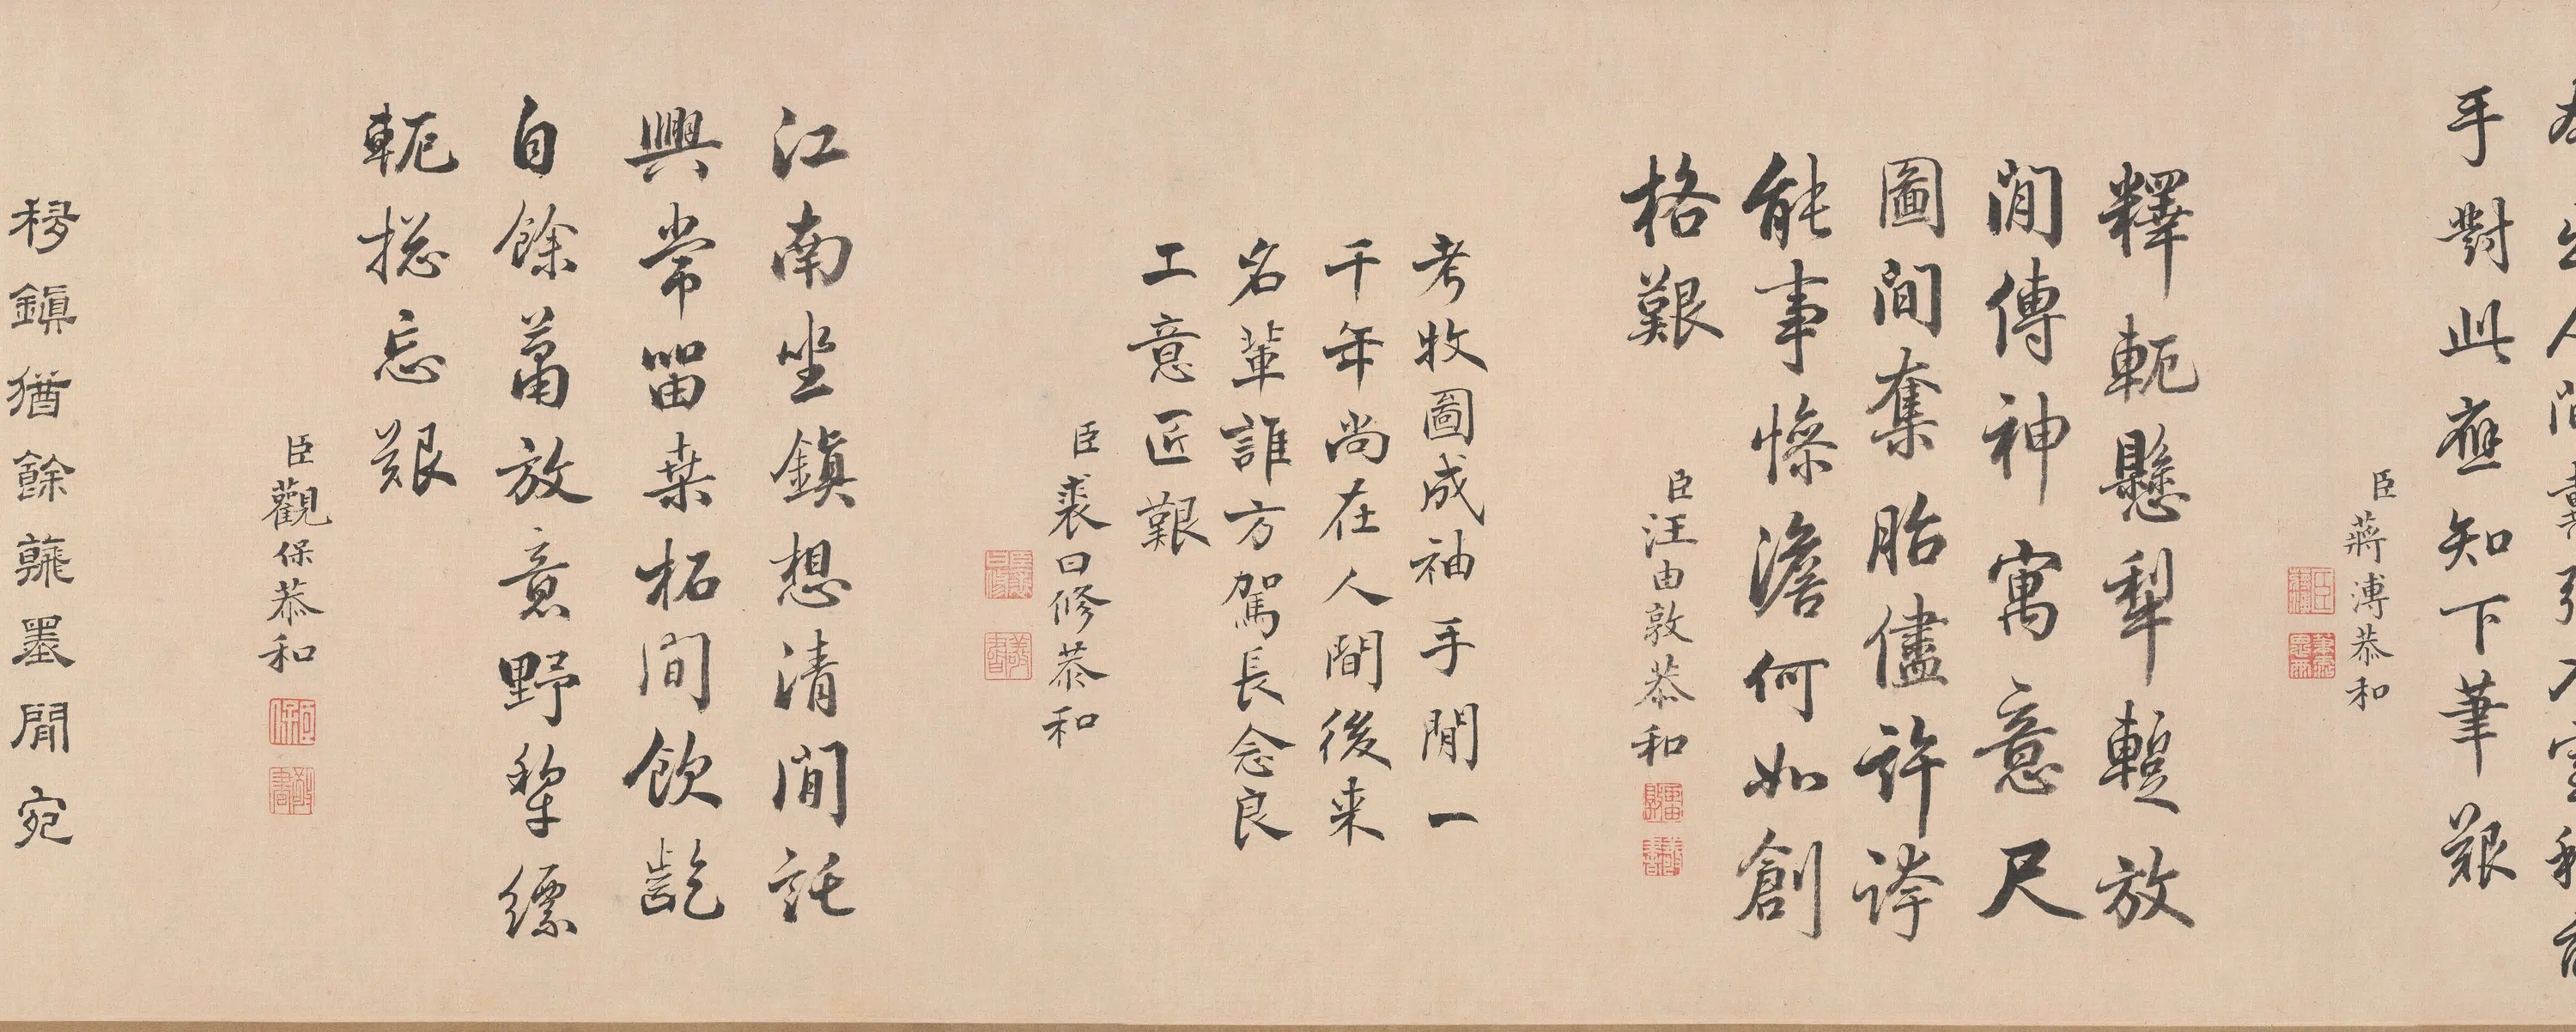 手對此應知下筆艱
臣蔣溥恭和
釋軛懸犁蹔放
閒傳神寓意尺
圖間奪胎儘許誇
能事慘澹何如創
格艱
臣汪由敦恭和
考牧圖成袖手閒一
千年尚在人間後来
名輩誰方駕長念良
工意匠艱
臣裘曰修恭和
江南坐鎮想清閒託
興常留桒柘間飲齕
自餘蕭放意野犂縹
軛揔忘艱
臣觀保恭和
穆鎮猶餘蓺墨閒宛